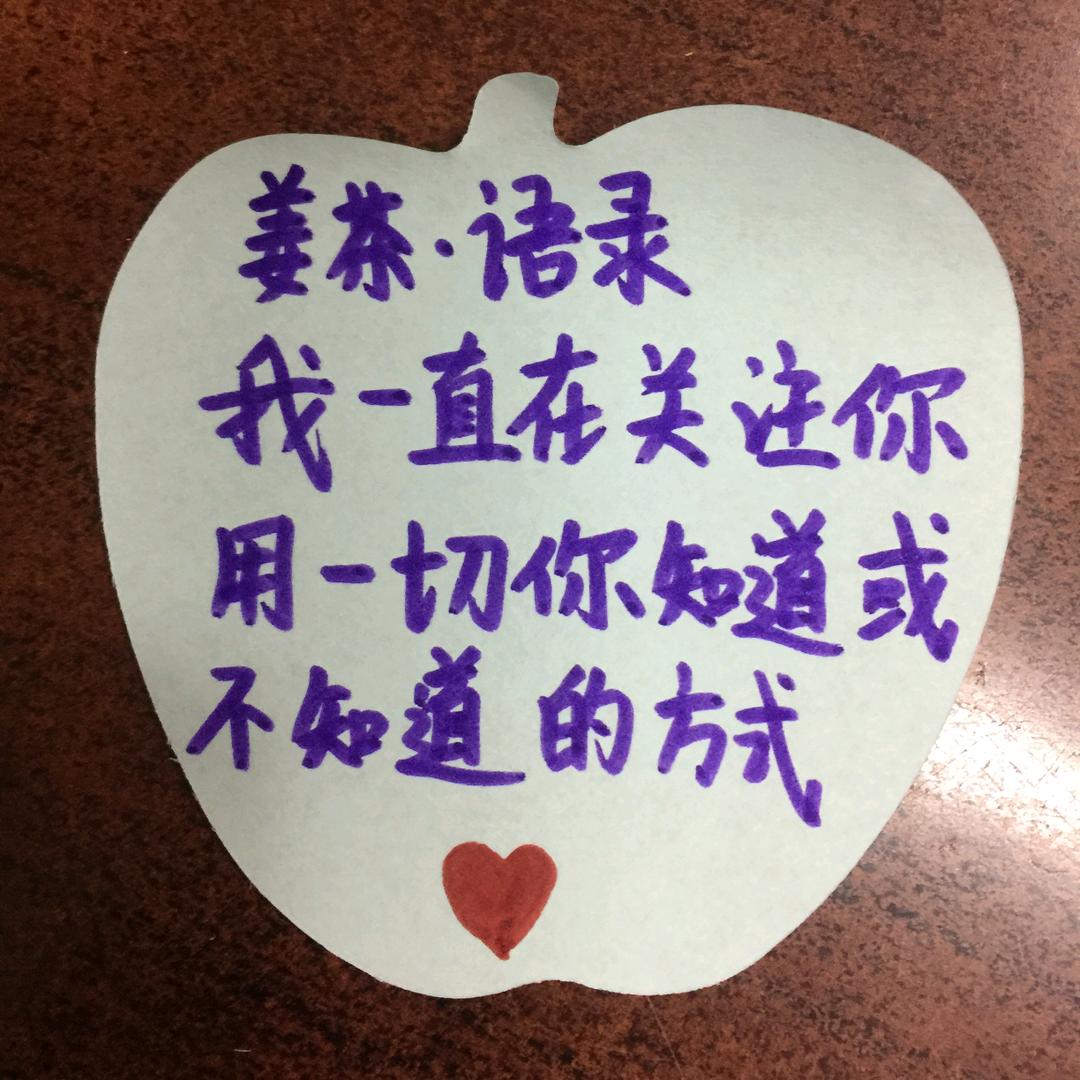 姜茶·语录
我一直在关注你
用一切你知道或
不知道的方式